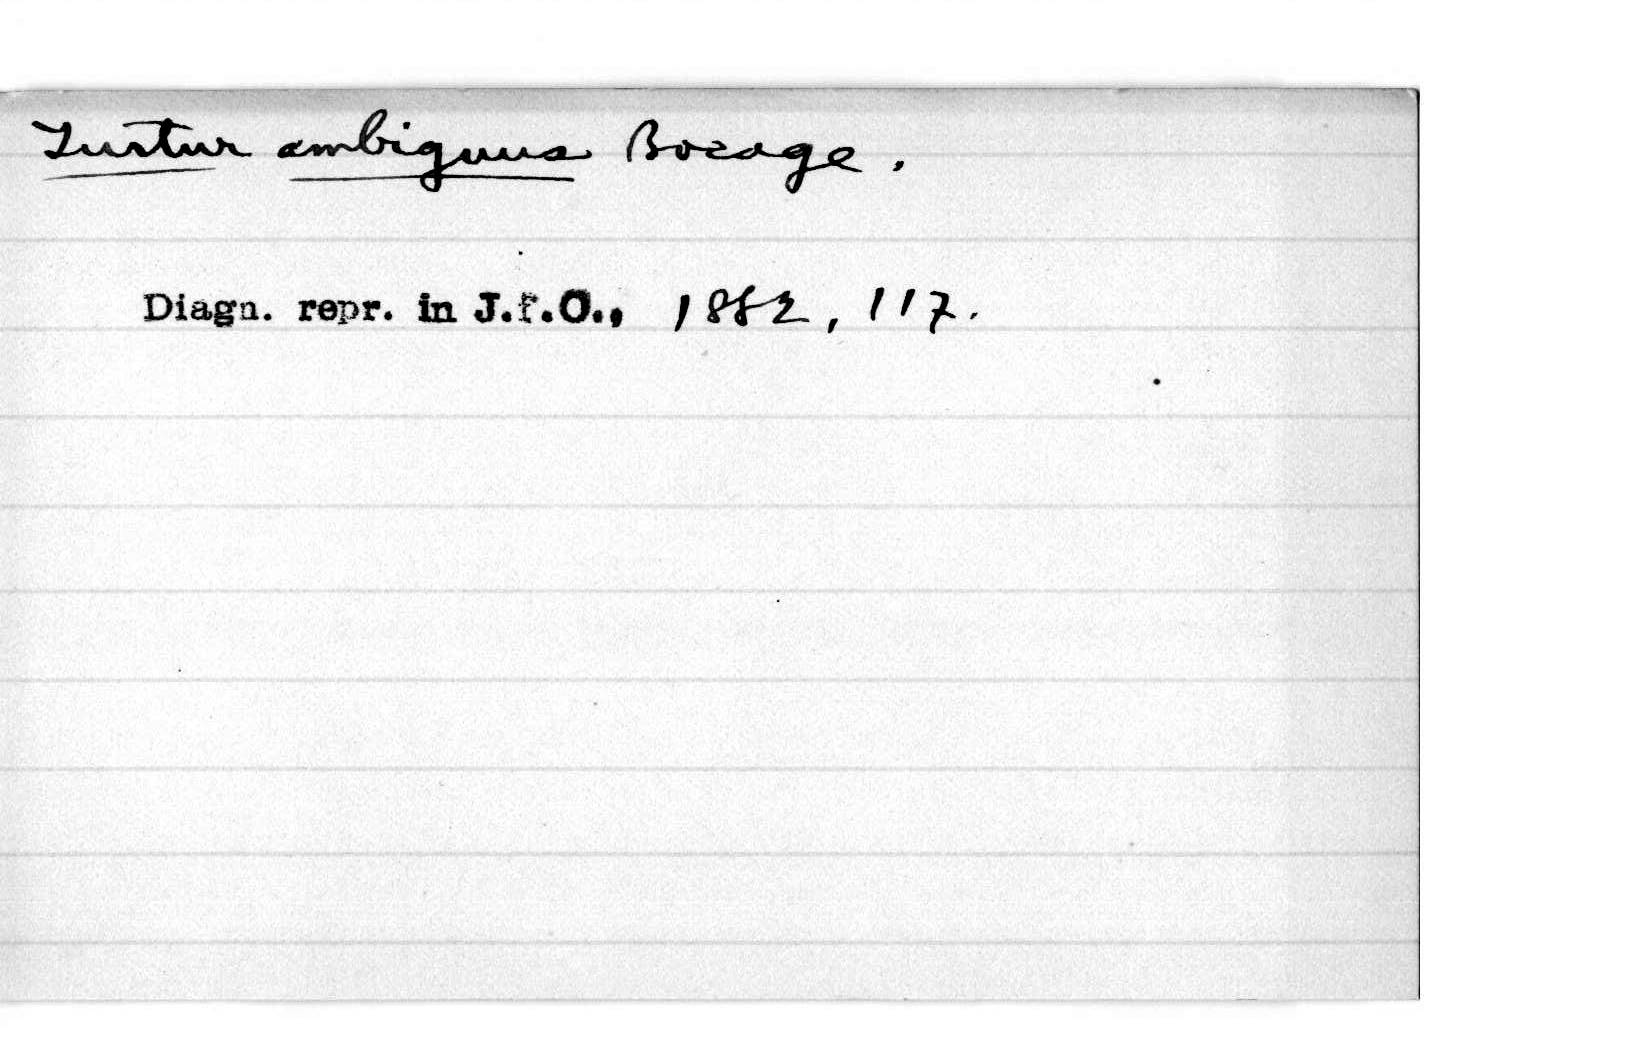 Turtur ambiguus Bocage.
Diagn. repr. in J.f.O., 1882, 117.